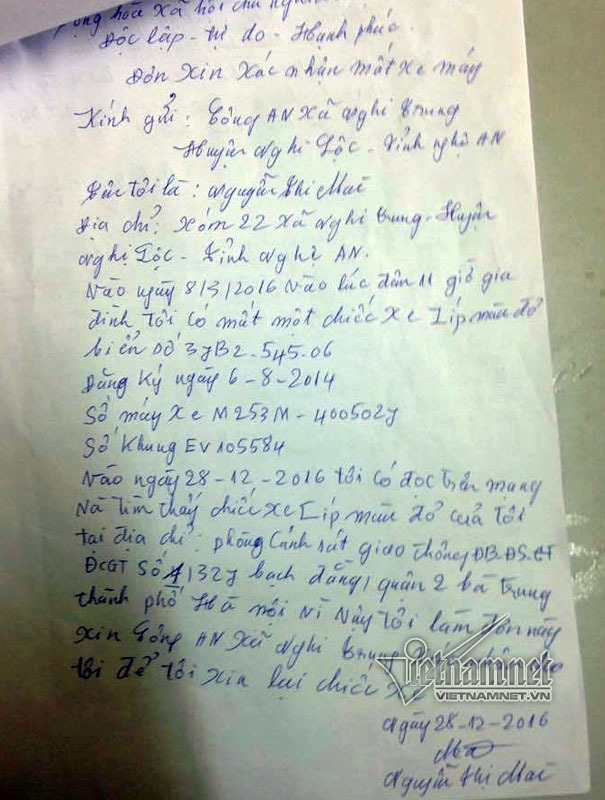 Cộng hòa xã hội chủ ngh
Độc lập - tự do - Hạnh phúc
Đơn xin xác nhận mất xe máy
Kính gửi : Công AN xã nghi trung
Huyện nghi Lộc - tỉnh nghệ AN
tên tôi là : Nguyễn thị Mai
Địa chỉ : xóm 22 xã nghi trung - Huyện
nghi Lộc - tỉnh nghệ AN.
vào ngày 8/3/2016 vào lúc đêm 11 giờ gia
đình tôi có mất một chiếc xe Líp màu đỏ
biển số 37B2-545.06
Đăng ký ngày 6-8-2014
Số máy xe M253M-4005027
Số Khung EV105584
vào ngày 28-12-2016 tôi có đọc trên mạng
và tìm thấy chiếc xe Líp màu đỏ của tôi
tại địa chỉ : phòng Cảnh sát giao thông ĐB.ĐS.CT
ĐCGT Số 1/327 bạch đằng, quận 2 bà trưng
thành phố Hà nội vì vậy tôi làm đơn này
xin Công AN xã nghi trung
tôi để tôi xin lại chiếc xe
ngày 28-12-2016
Nguyễn thị Mai
Vietnamnet
VIETNAMNET.VN